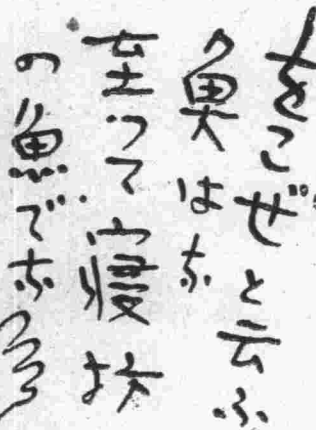 をこぜと云ふ
魚は
至って寝坊
の魚で